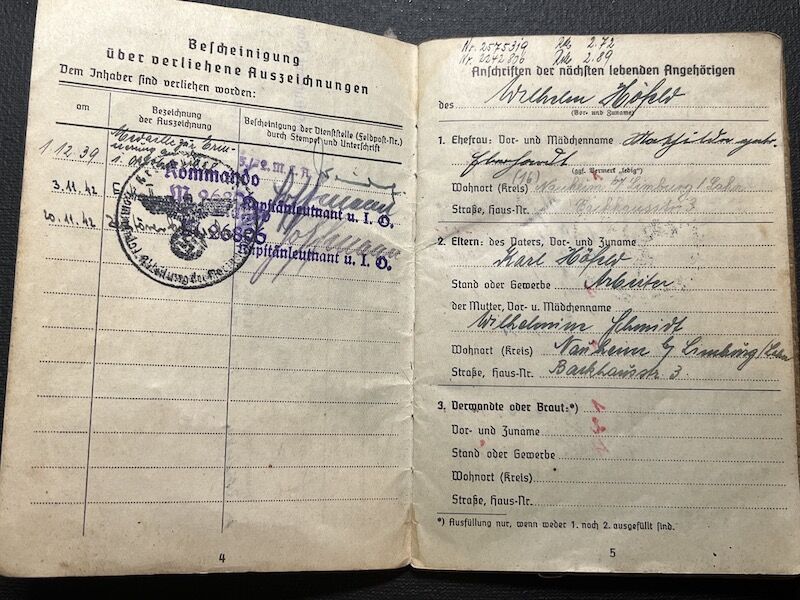 Bescheinigung
über verliehene Auszeichnungen
Dem Inhaber sind verliehen worden:
am
Bezeichnung
der Auszeichnung
Bescheinigung der Dienststelle (Feldpost-Nr.)
durch Stempel und Unterschrift
1.12.39
Medaille zur Erin-
Kommando
3.11.42
Kapitänleutnant u. I. O.
20.11.42
26806
Kapitänleutnant u. I. O.
4
Nr. 2575319 2.72
Nr. 2242806 2.89
Anschriften der nächsten lebenden Angehörigen
des Wilhelm Höfeld
(Vor- und Zuname)
1. Ehefrau: Vor- und Mädchenname Mathilde geb.
Eberhardt
(ggf. Vermerk „ledig")
(16)
Wohnort (Kreis) Nauheim b/ Limburg/Lahn
Straße, Haus-Nr. Backhausstr 3
2. Eltern: des Vaters, Vor- und Zuname
Karl Höfeld
Stand oder Gewerbe Arbeiter
der Mutter, Vor- u. Mädchenname
Wilhelmine Schmidt
Wohnort (Kreis) Nauheim b/ Limburg/Lahn
Straße, Haus-Nr. Backhausstr 3
3. Verwandte oder Braut:*)
Vor- und Zuname
Stand oder Gewerbe
Wohnort (Kreis)
Straße, Haus-Nr.
*) Ausfüllung nur, wenn weder 1. noch 2. ausgefüllt sind.
5